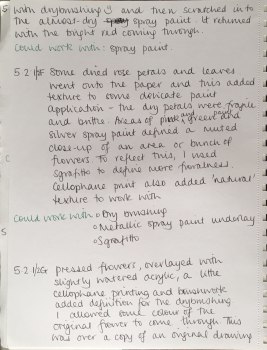 S with drybrushing and then scratched into
the almost-dry spray paint. It returned
with the bright red coming through.
Could work with: spray paint.
5 2 1/2F Some dried rose petals and leaves
went onto the paper and this added
texture to some delicate paint
application - the dry petals were fragile
and brittle. Areas of pink, and green and
silver spray paint defined a muted
close-up of an area or bunch of
flowers. To reflect this, I used
sgrafitto to define more floralness.
Cellophane print also added 'natural'
texture to work with
Could work with o Dry brushing
o Metallic spray paint underlay
o Sgrafitto
5 2 1/2G Pressed flowers, overlayed with
slightly watered acrylic, a little
cellophane printing and brushwork
added definition for the drybrushing.
I allowed some colour of the
original flower to come through. This
was over a copy of an original drawing